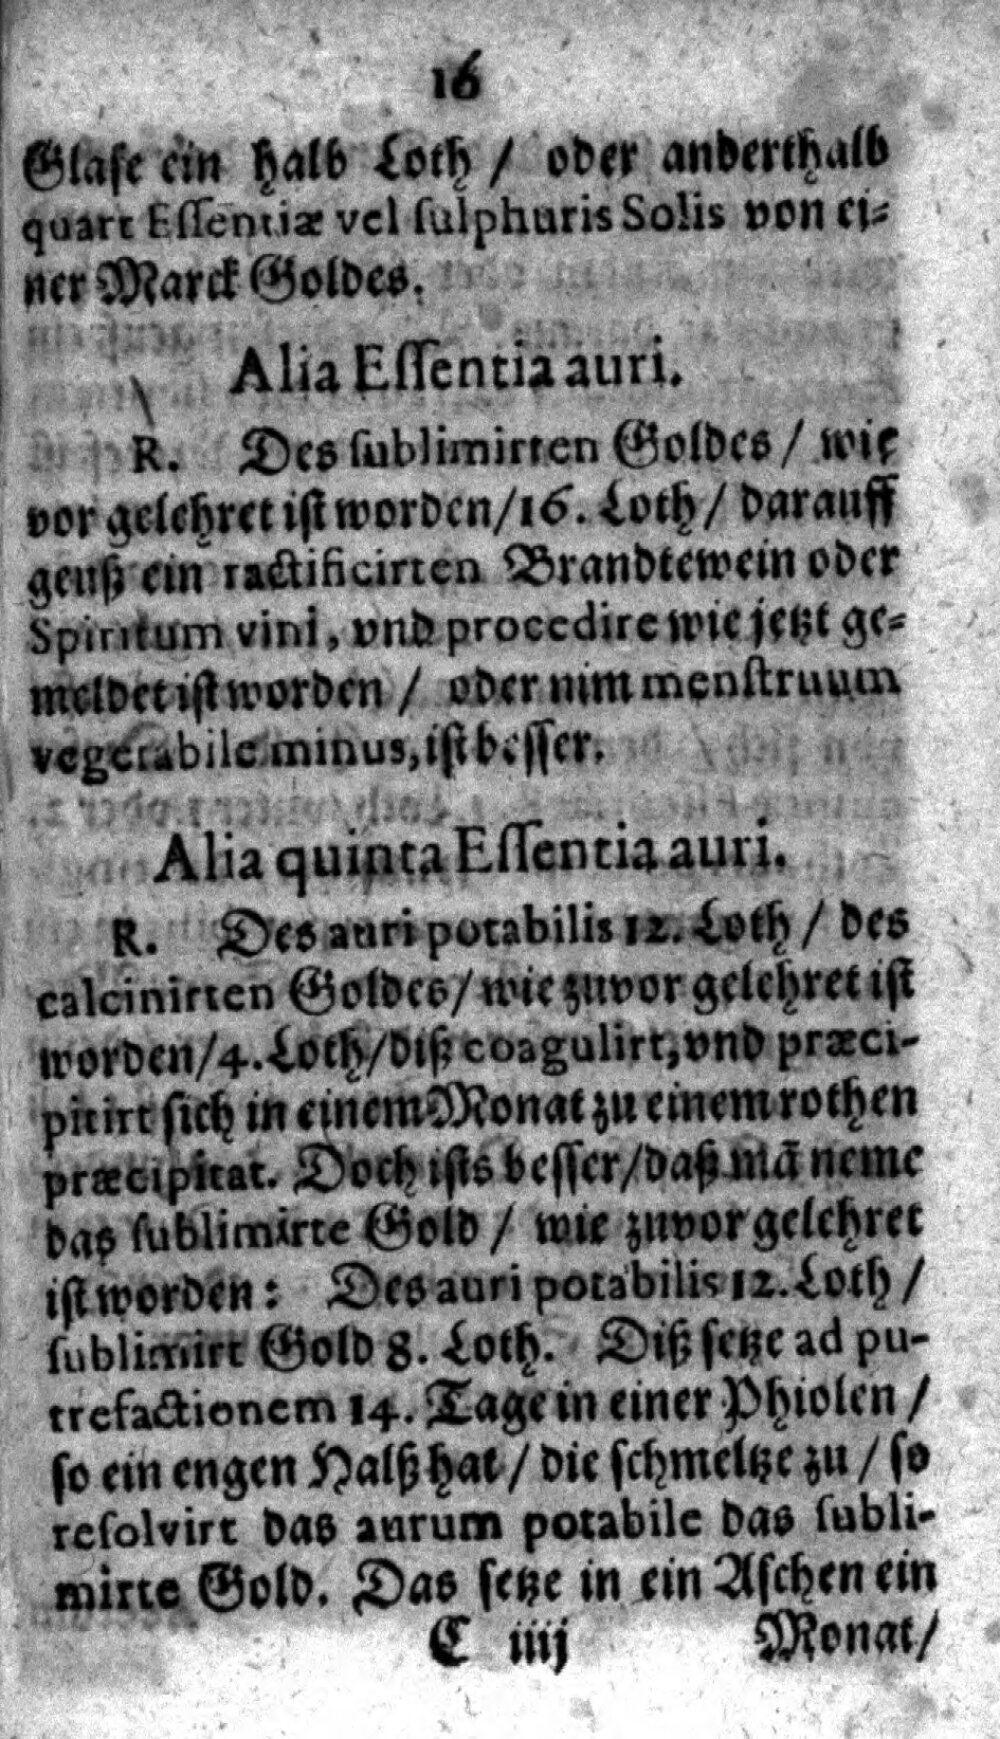 16
Glaſe ein halb Loth / oder anderthalb
quart Eſſentiæ vel ſulphuris Solis von ei⸗
ner Marck Goldes.
Alia Eſſentia auri.
R. Des ſublimirten Goldes / wie
vor gelehret iſt worden/16. Loth/ darauff
geuß ein ractificirten Brandtewein oder
Spiritum vini, vnd procedire wie jetzt ge⸗
meldet iſt worden / oder nim menſtruum
vegetabile minus, iſt beſſer.
Alia quinta Eſſentia auri.
R. Des auri potabilis 12. Loth / des
calcinirten Goldes/ wie zuvor gelehret iſt
worden/4. Loth/diß coagulirt, vnd præci-
pitirt ſich in einem Monat zu einem rothen
præcipitat. Doch iſts beſſer/daß mã neme
das ſublimirte Gold / wie zuvor gelehret
iſt worden: Des auri potabilis 12. Loth /
ſublimirt Gold 8. Loth. Diß ſetze ad pu-
trefactionem 14. Tage in einer Phiolen /
ſo ein engen Halß hat / die ſchmeltze zu / ſo
reſolvirt das aurum potabile das ſubli-
mirte Gold. Das ſetze in ein Aſchen ein
C iiij Monat/